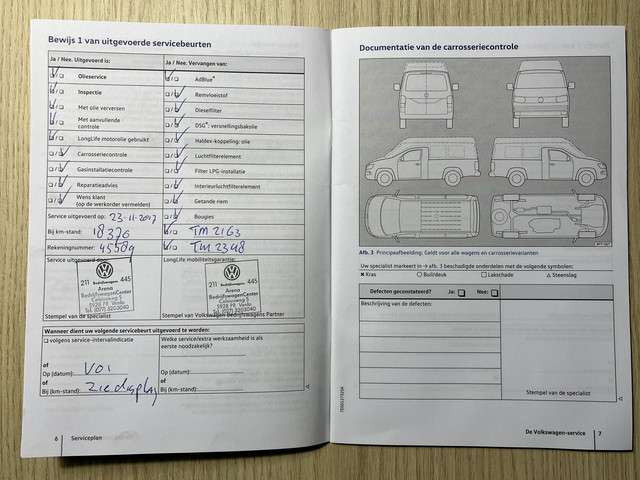 Bewijs 1 van uitgevoerde servicebeurten
Ja / Nee. Uitgevoerd is:
Olieservice
Inspectie
Met olie verversen
Met aanvullende
controle
LongLife motorolie gebruikt
Carrosseriecontrole
Gasinstallatiecontrole
Reparatieadvies
Wens klant
(op de werkorder vermelden)
Service uitgevoerd op: 23-11-2017
Bij km-stand: 18376
Rekeningnummer: 45509
Ja / Nee. Vervangen van:
AdBlue®
Remvloeistof
Dieselfilter
DSG®: versnellingsbakolie
Haldex-koppeling: olie
Luchtfilterelement
Filter LPG-installatie
Interieurluchtfilterelement
Getande riem
Bougies
TM 2163
TM 2348
Service uitgevoerd door:
211 445
Arena
BedrijfwagenCenter
5928 PR Venlo
Stempel van de specialist
LongLife mobiliteitsgarantie:
211 445
Arena
BedrijfwagenCenter
5928 PR Venlo
Stempel van Volkswagen Bedrijfswagens Partner
Wanneer dient uw volgende servicebeurt uitgevoerd te worden:
volgens service-intervalindicatie
of
Op (datum): VOI
of
Bij (km-stand): Zie display
Welke service/extra werkzaamheid is als
eerste noodzakelijk?
of
Op (datum):
of
Bij (km-stand):
6 Serviceplan
Documentatie van de carrosseriecontrole
Afb. 3 Principeafbeelding: Geldt voor alle wagens en carrosserievarianten
Uw specialist markeert in → afb. 3 beschadigde onderdelen met de volgende symbolen:
Kras Buil/deuk Lakschade Steenslag
Defecten geconstateerd? Ja: Nee:
Beschrijving van de defecten:
Stempel van de specialist
De Volkswagen-service 7